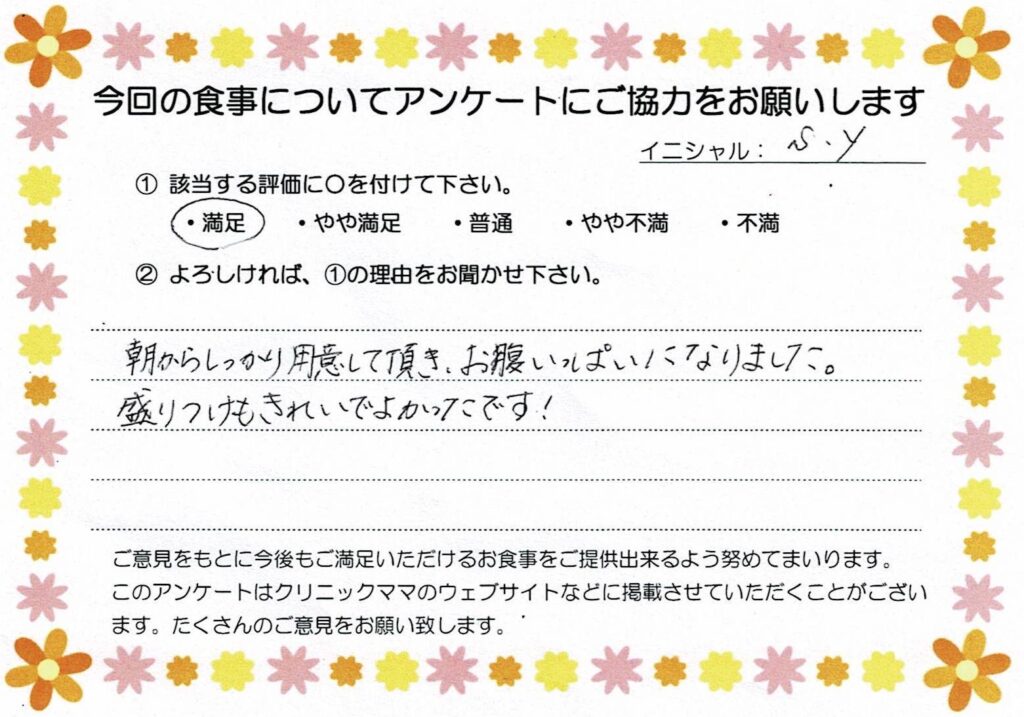 今回の食事についてアンケートにご協力をお願いします
イニシャル： S.Y
① 該当する評価に〇を付けて下さい。
・満足 ・やや満足 ・普通 ・やや不満 ・不満
② よろしければ、①の理由をお聞かせ下さい。
朝からしっかり用意して頂き、お腹いっぱいになりました。
盛りつけもきれいでよかったです！
ご意見をもとに今後もご満足いただけるお食事をご提供出来るよう努めてまいります。
このアンケートはクリニックママのウェブサイトなどに掲載させていただくことがござい
ます。たくさんのご意見をお願い致します。